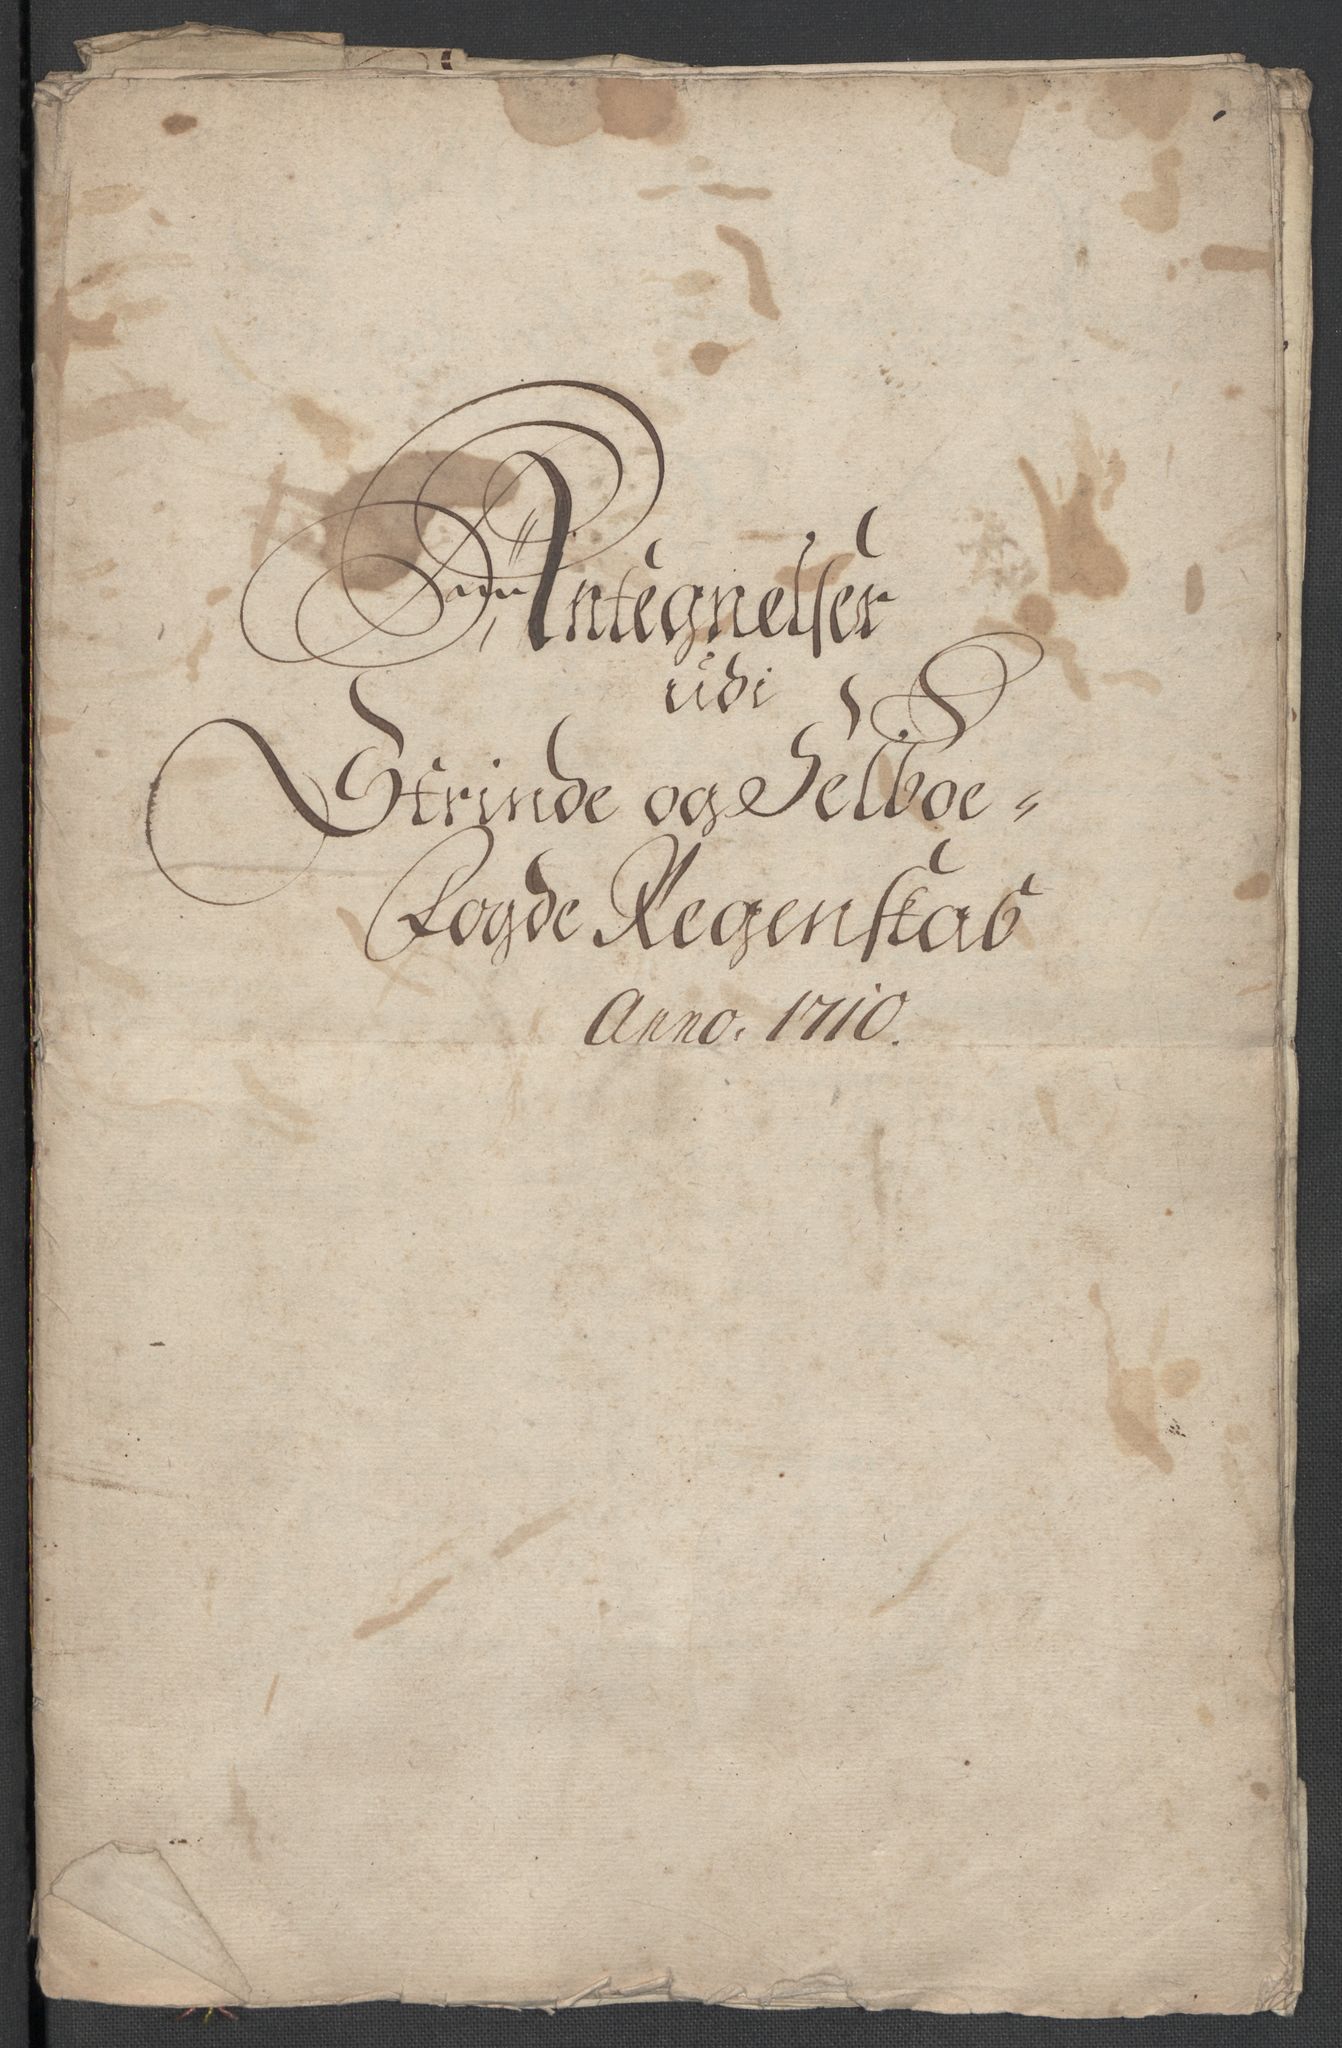 Antegnelser
udi
Strinde og Selboe-
Fogde Regenskab
Anno. 1710.